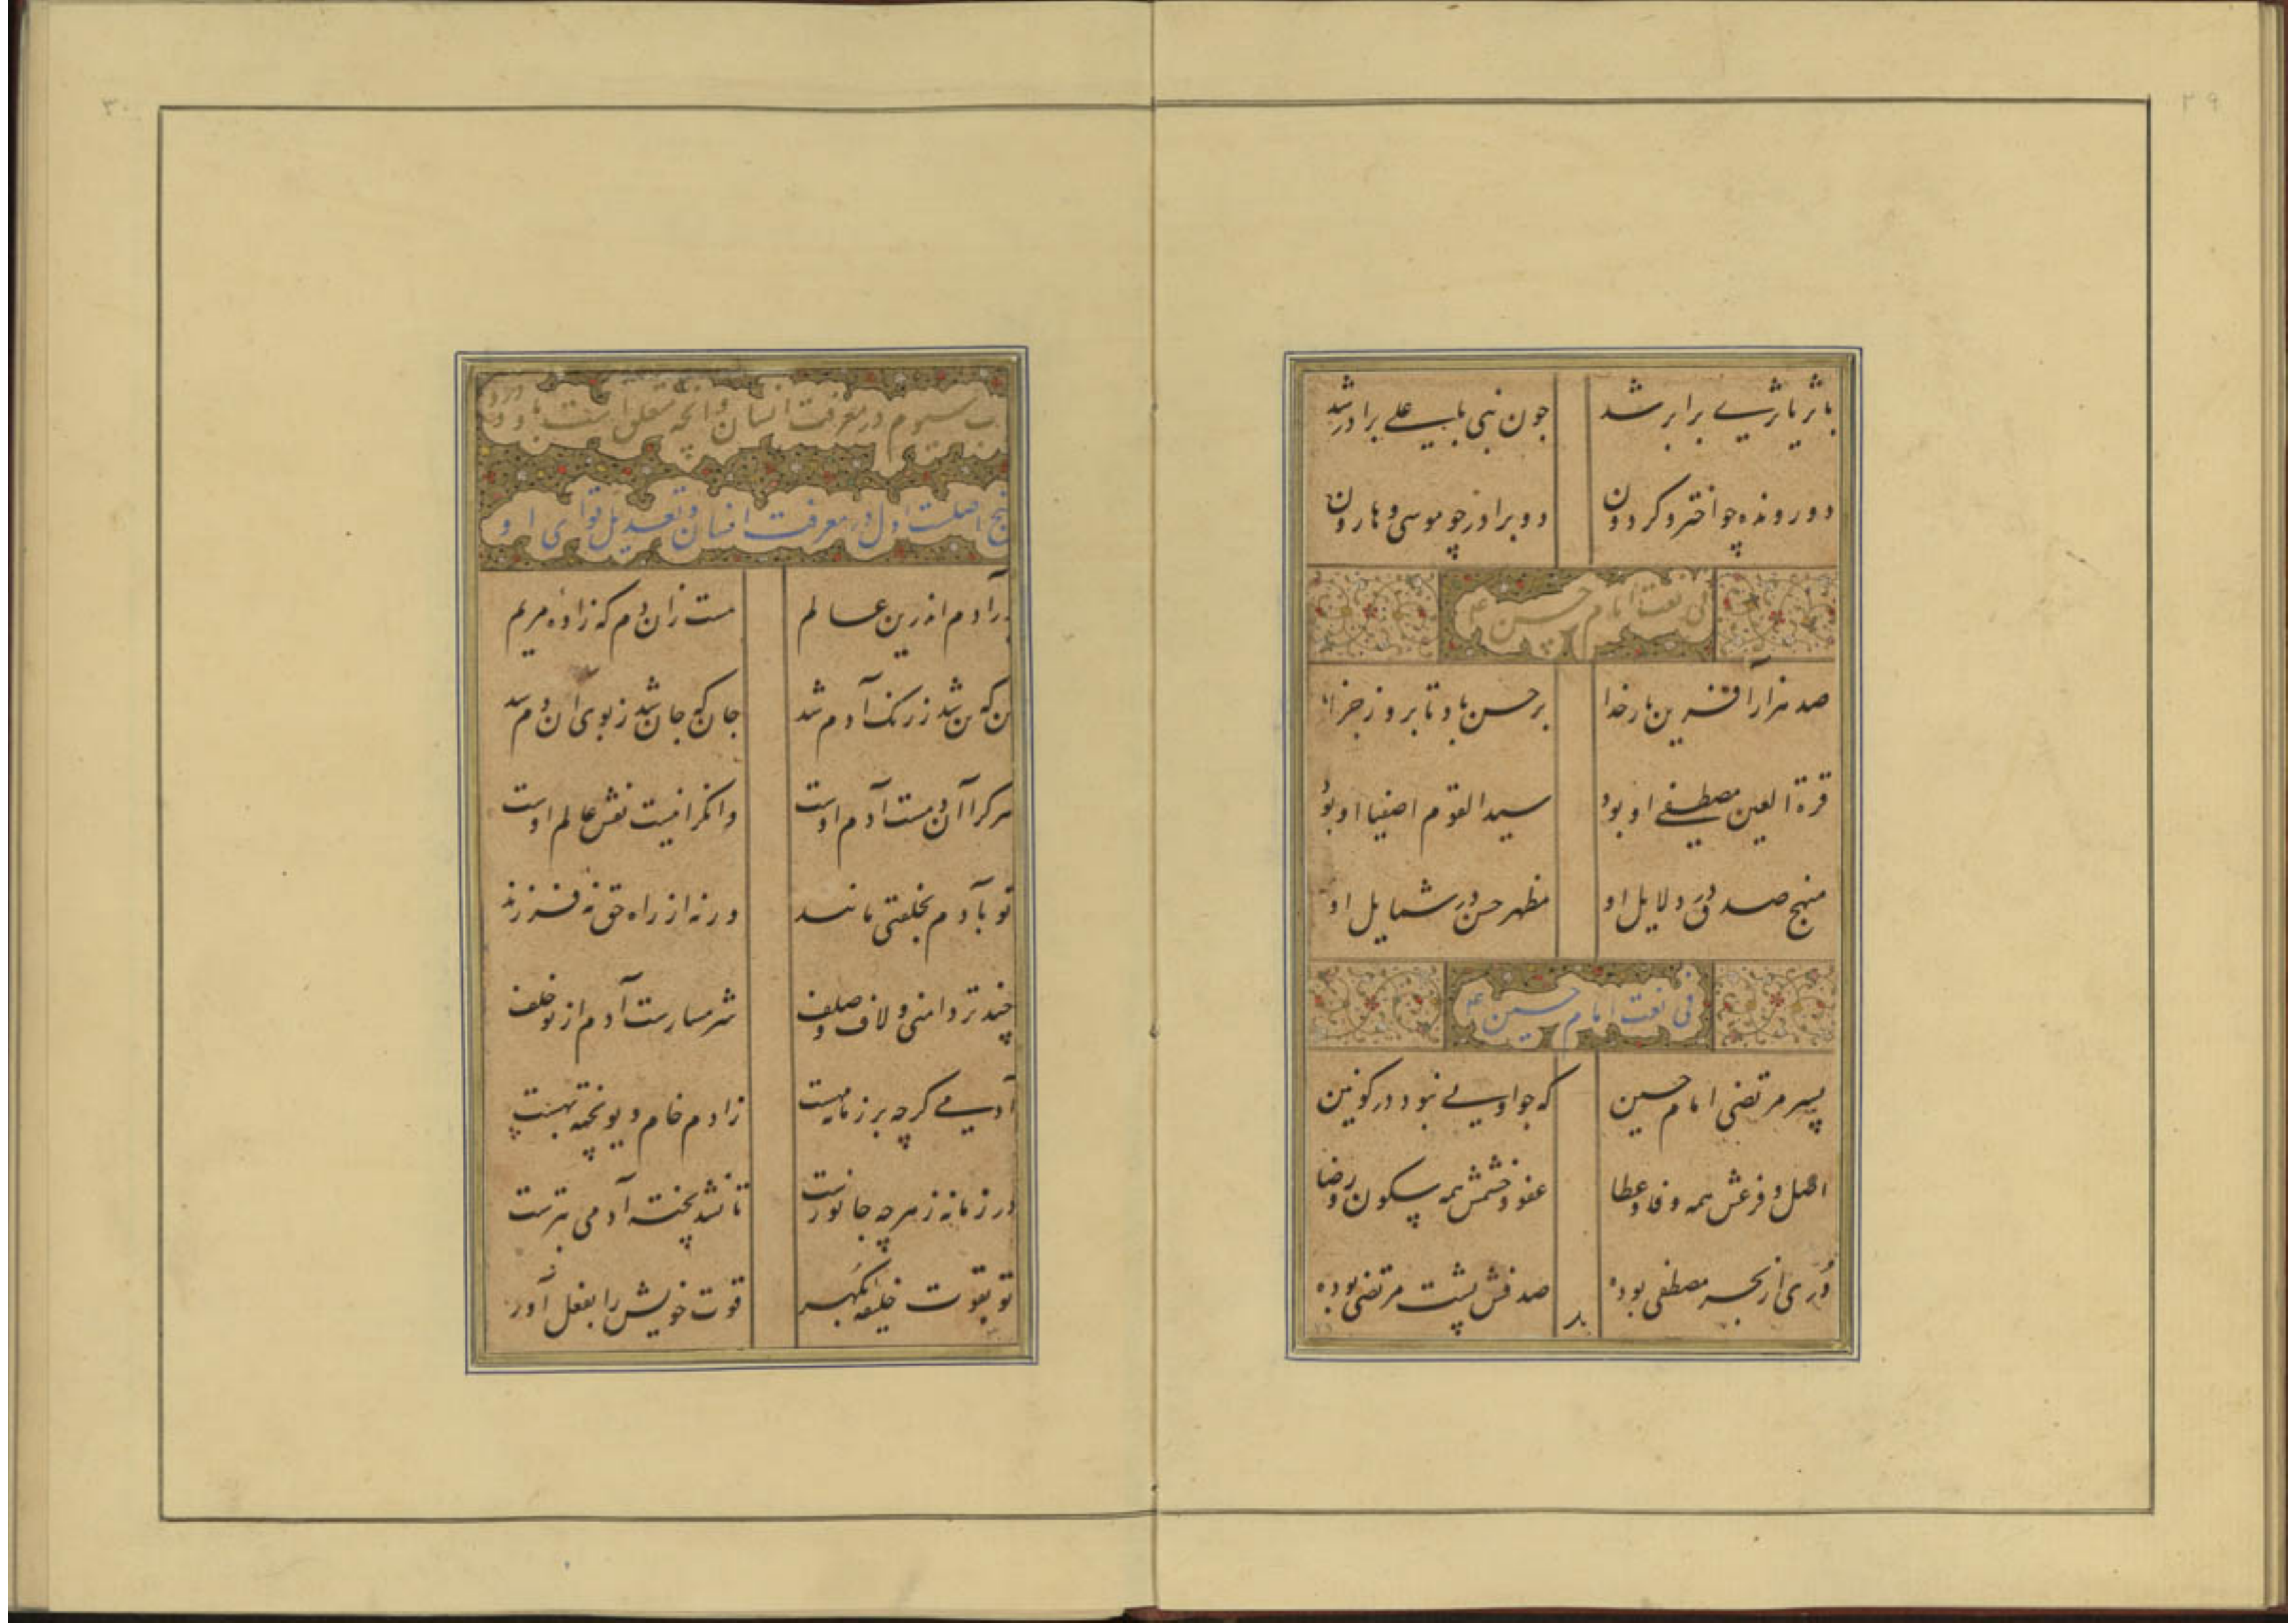 ۲۹
با ثریا ثریی برابر شد جون نبی با علی برادر شد
دو رونده چو اختر و کردون دو برادر چو موسی و هارون
فی نعت امام حسن ع
صد هزار آفرین بار خدا بر حسن باد تا بروز جزا
قرة العین مصطفی او بود سید القوم اصفیا او بود
منهج صدق در دلایل او مظهر حسن در شمایل او
فی نعت امام حسین ع
پسر مرتضی امام حسین که جو اویی نبود در کونین
اصل و فرعش همه وفا و عطا عفو و خشمش همه سکون و رضا
دُری از بحر مصطفی بوده صدفش پشت مرتضی بوده
۳۰
سیوم در معرفت انسان و آنچه متعلق است باو و درو
پنج اصلست اول در معرفت انسان و تعدیل قوای او
در آدم اندرین عالم هست زان دم که زاده مریم
تن که تن شد ز رنک آدم شد جان که جان شد ز بوی آن دم شد
هر کرا آن دمست آدم اوست وانکرا نیست نقش عالم اوست
تو بآدم بخلقتی مانند ورنه از راه حق نه فرزند
چند تر دامنی و لاف و صلف شرمسارست آدم از تو خلف
آدمی کرچه بر زمانه مهست زادم خام دیو پخته بهست
در زمانه ز هرچه جانورست تا نشد پخته آدمی بترست
تو بقوت خلیفه بکهر قوت خویش را بفعل آور